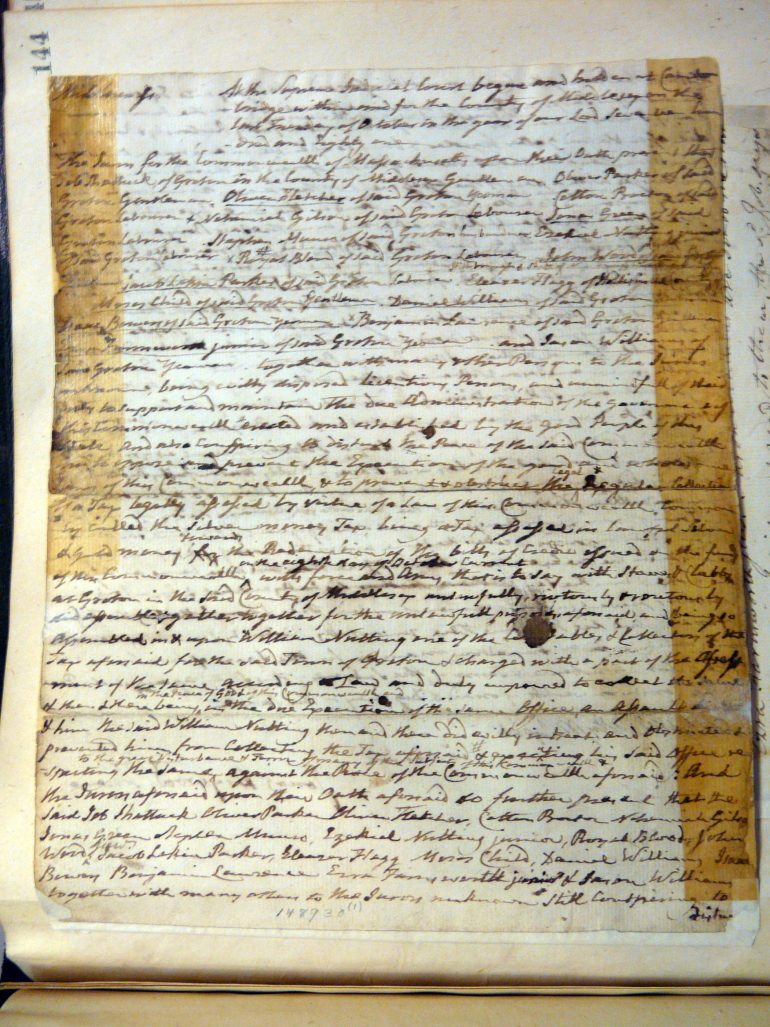 144
Middlesex ss At the Supreme Judicial Court begun and holden at Cam
bridge within and for the County of Middlesex on the
last Tuesday of October in the year of our Lord Seventeen hun
dred and Eighty one
The Jurors for the Commonwealth of Massachusetts upon their Oath present that
Job Shattuck of Groton in the County of Middlesex Gentleman Oliver Parker of said
Groton Gentleman, Oliver Fletcher of said Groton Yeoman Cotton of said
Groton Labourer & Nehemiah Gilson of said Groton Labourer Jonas Green of said
Groton Labourer Stephen Munro of said Groton Ezekiel Nutting junior
of said Groton Royal Blood of said Groton Labourer John Wood
Jacob Lakin Parker of said Groton Labourer Eleazer Flagg of
Moses Child of said Groton Gentleman, Daniel Williams of said Groton
Isaac Bowers of said Groton Yeoman Benjamin Lawrence of said Groton
Farnsworth junior of said Groton Yeoman and Jason Williams of
said Groton Yeoman together with many other Persons to the Jurors
unknown, being evilly disposed licentious Persons, and unmindful of their
duty to support and maintain the due Administration of the Government of
this Commonwealth erected and established by the good People of this
State and also Conspiring to disturb the Peace of the said Commonwealth
and to oppose and prevent the Execution of the good and wholesome
Laws of this Commonwealth & to prevent & obstruct the legal & Regular Collection
of a Tax legally assessed by virtue of a Law of this Commonwealth, Common
ly called the Silver money Tax being a Tax assessed in
& Gold money towards the Redemption of the bills of Credit issued on the fund
on the eighth day of October Current
of this Commonwealth, with force and Arms, that is to say with Staves & Clubbs
at Groton in the said County of Middlesex unlawfully, riotously & routously
did assemble & gather together for the unlawfull purposes aforesaid and being so
Assembled in & upon William Nutting one of the Constables & Collectors of the
Tax aforesaid for the said Town of Groton & charged with a part of the Assess
ment of the same according to Law and duly impowered to collect the same
in the Peace of God & this Commonwealth and
& then & there being, in the due Execution of the same Office, an Assault
& him the said William Nutting then and there did with and obstruct &
prevented him from Collecting the Tax aforesaid & executing his said Office re
to the great disturbance & Terror of many of the Subjects of this Commonwealth &
specting the same, against the Peace of the Commonwealth aforesaid: And
the Jurors aforesaid upon their Oath aforesaid do further present that the
said Job Shattuck Oliver Parker Oliver Fletcher, Cotton Nehemiah Gilson
Jonas Green Stephen Munro, Ezekiel Nutting junior, Royal Blood, John
Wood Jacob Lakin Parker, Eleazer Flagg Moses Child, Daniel Williams, Isaac
Bowers Benjamin Lawrence Ezra Farnsworth junior & Jason Williams
together with many others to the Jurors unknown still Conspiring to
148930 (1)
distur